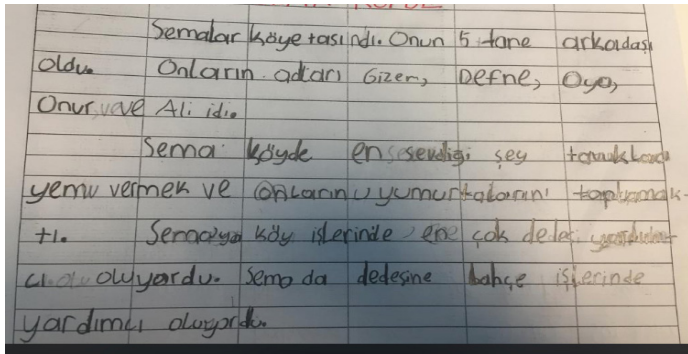 Semalar köye tasındı. Onun 5 tane arkadaşı
oldu. Onların adları Gizem, Defne, Oya,
Onur, ve Ali idi.
Sema köyde en sevdiği şey tavuklara
yemu vermek ve onların yumurtalarını toplamak-
tı. Semaya köy işlerinde en çok dedesi yardım
cı oluyordu. Sema da dedesine bahçe işlerinde
yardımcı oluyordu.